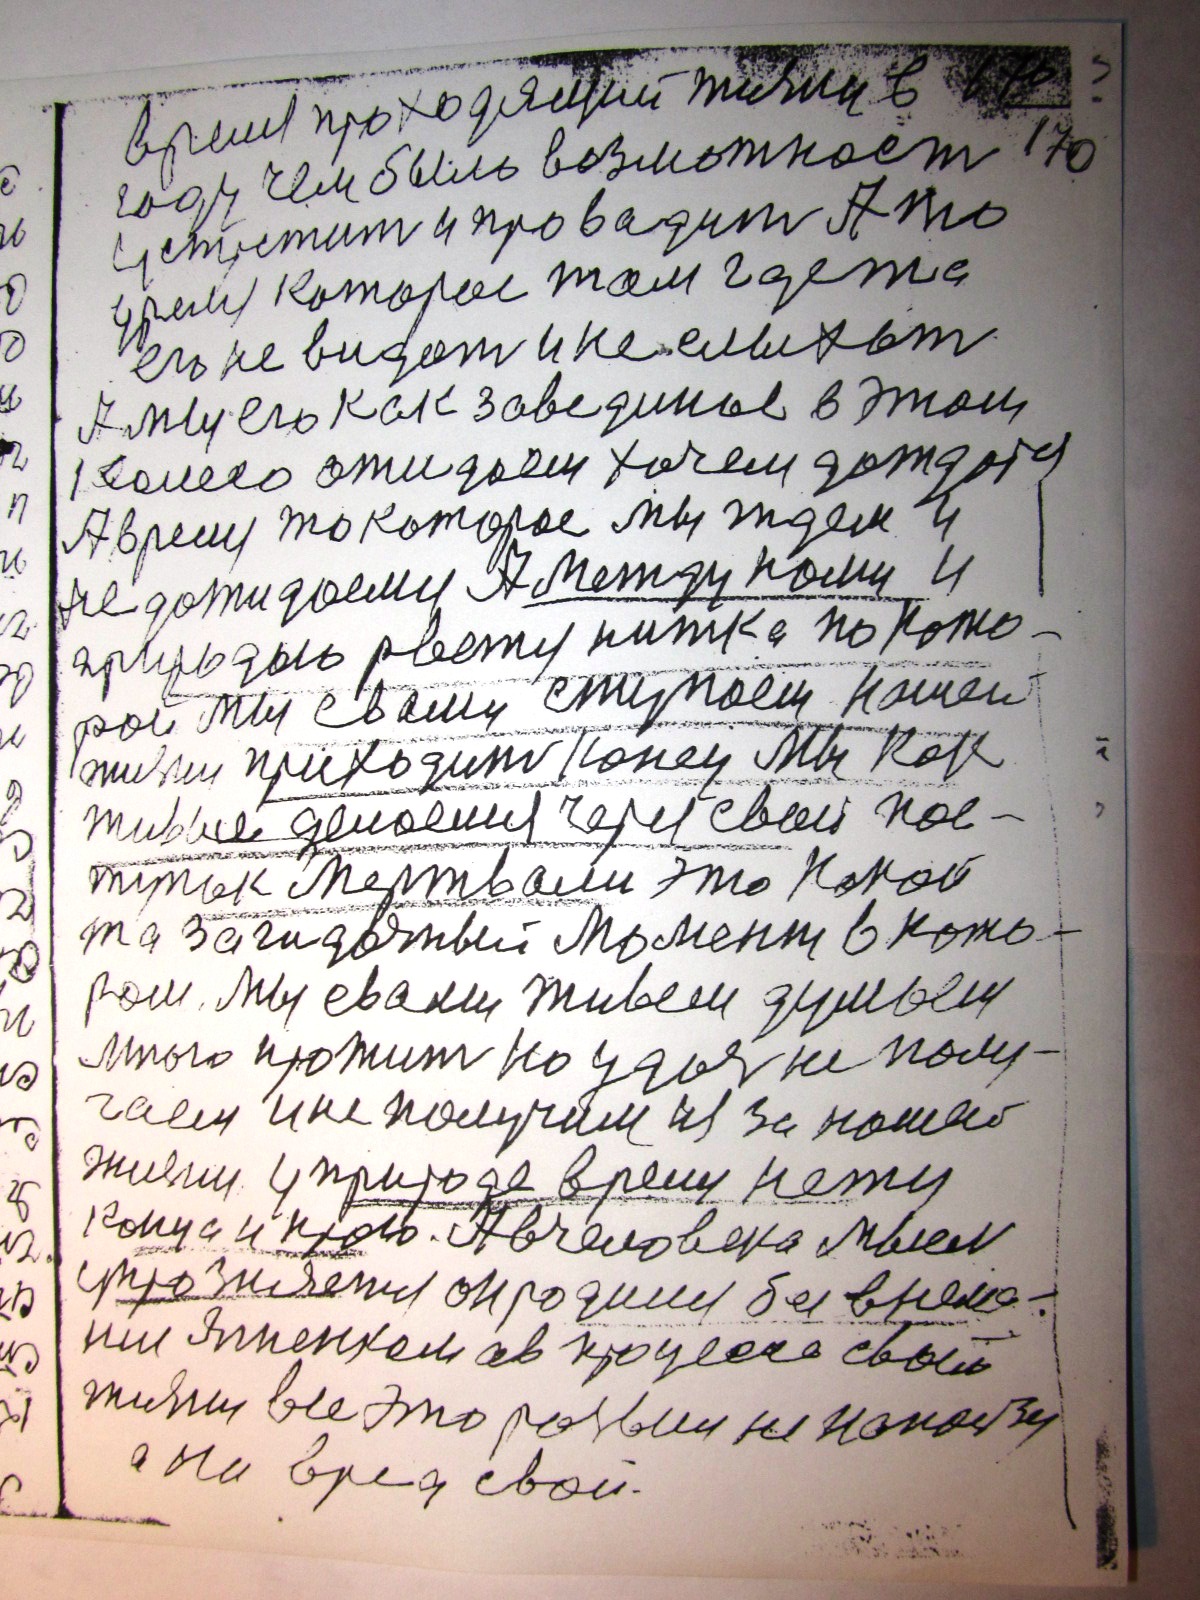 время проходящий жизни в 170
году чем быль возможност 170
устретит и провадит А то
время которое там где та
егь не видат и не слыхат
А мы егь как завединые в этом
колесо ожидаем хочем дождатся
А время то которое мы ждем и
не дожидаемся А между нами и
природаю рветя нитка по кото-
рой мы с вами ступаем нашей
жизни приходит конец Мы как
живые делаемся через свой пос-
тупак мертвами это какой
та загидачный момент в кото-
ром мы с вами живем думаем
много прожит но удач не полу-
чаем и не получим из за нашей
жизни у природе время нету
конца и краю. А в человека мысл
он родился без
а в процеса свои
жизни все это развил не на ползу
а на вред свой.